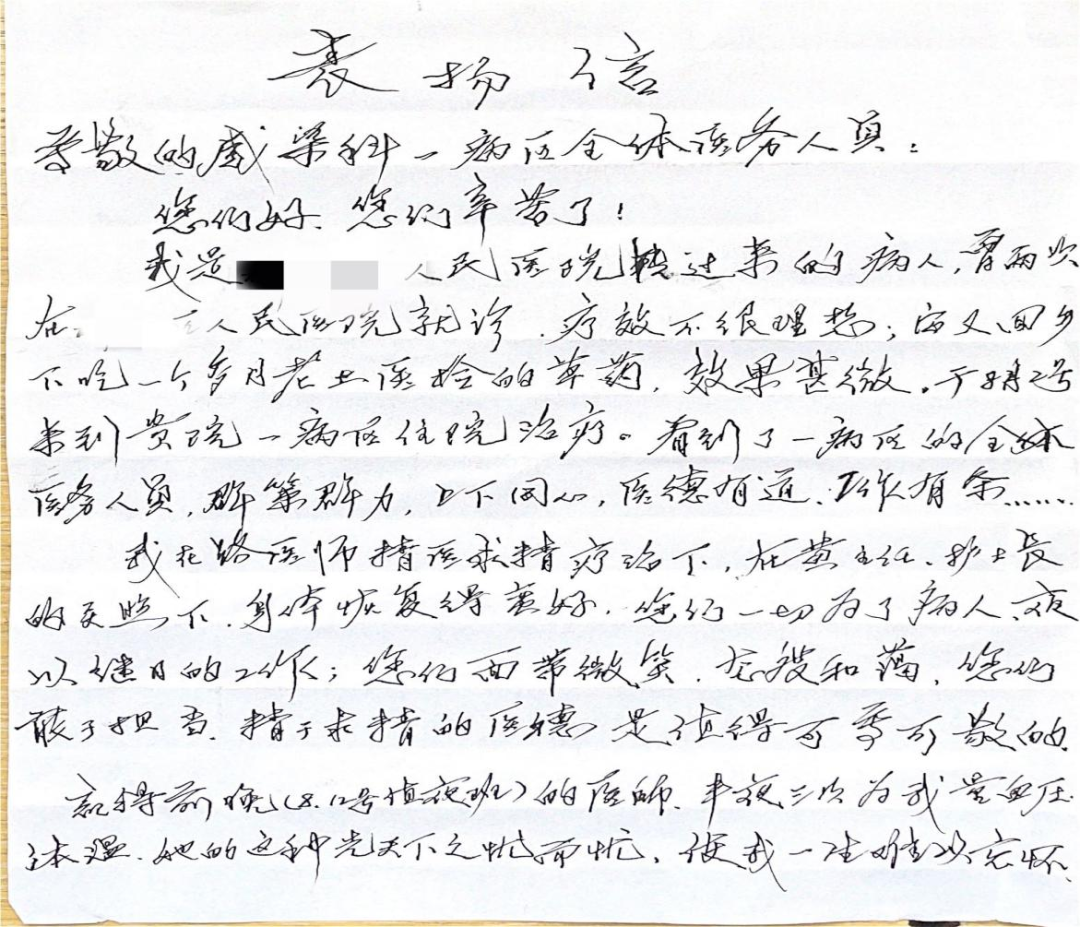 表扬信
尊敬的感染科一病区全体医务人员：
您们好、您们辛苦了！
我是 人民医院转过来的病人，曾两次
在 人民医院就诊，疗效不很理想；后又回乡
下吃一个多月老土医捡的草药，效果甚微。于8月2号
来到贵院一病区住院治疗。看到了一病区的全体
医务人员，群策群力，上下同心，医德有道，工作有条……
我在路医师精医求精疗治下，在黄主任、护士长
的关照下，身体恢复得莫好，您们一切为了病人，夜
以继日的工作；您们面带微笑，态度和蔼，您们
敢于担当，精于求精的医德是值得可季可敬的
就得前晚（8.12号值夜班）的医师，半夜三次为我量血压
体温，她的这种先天下之忧而忧，使我一生难以忘怀，